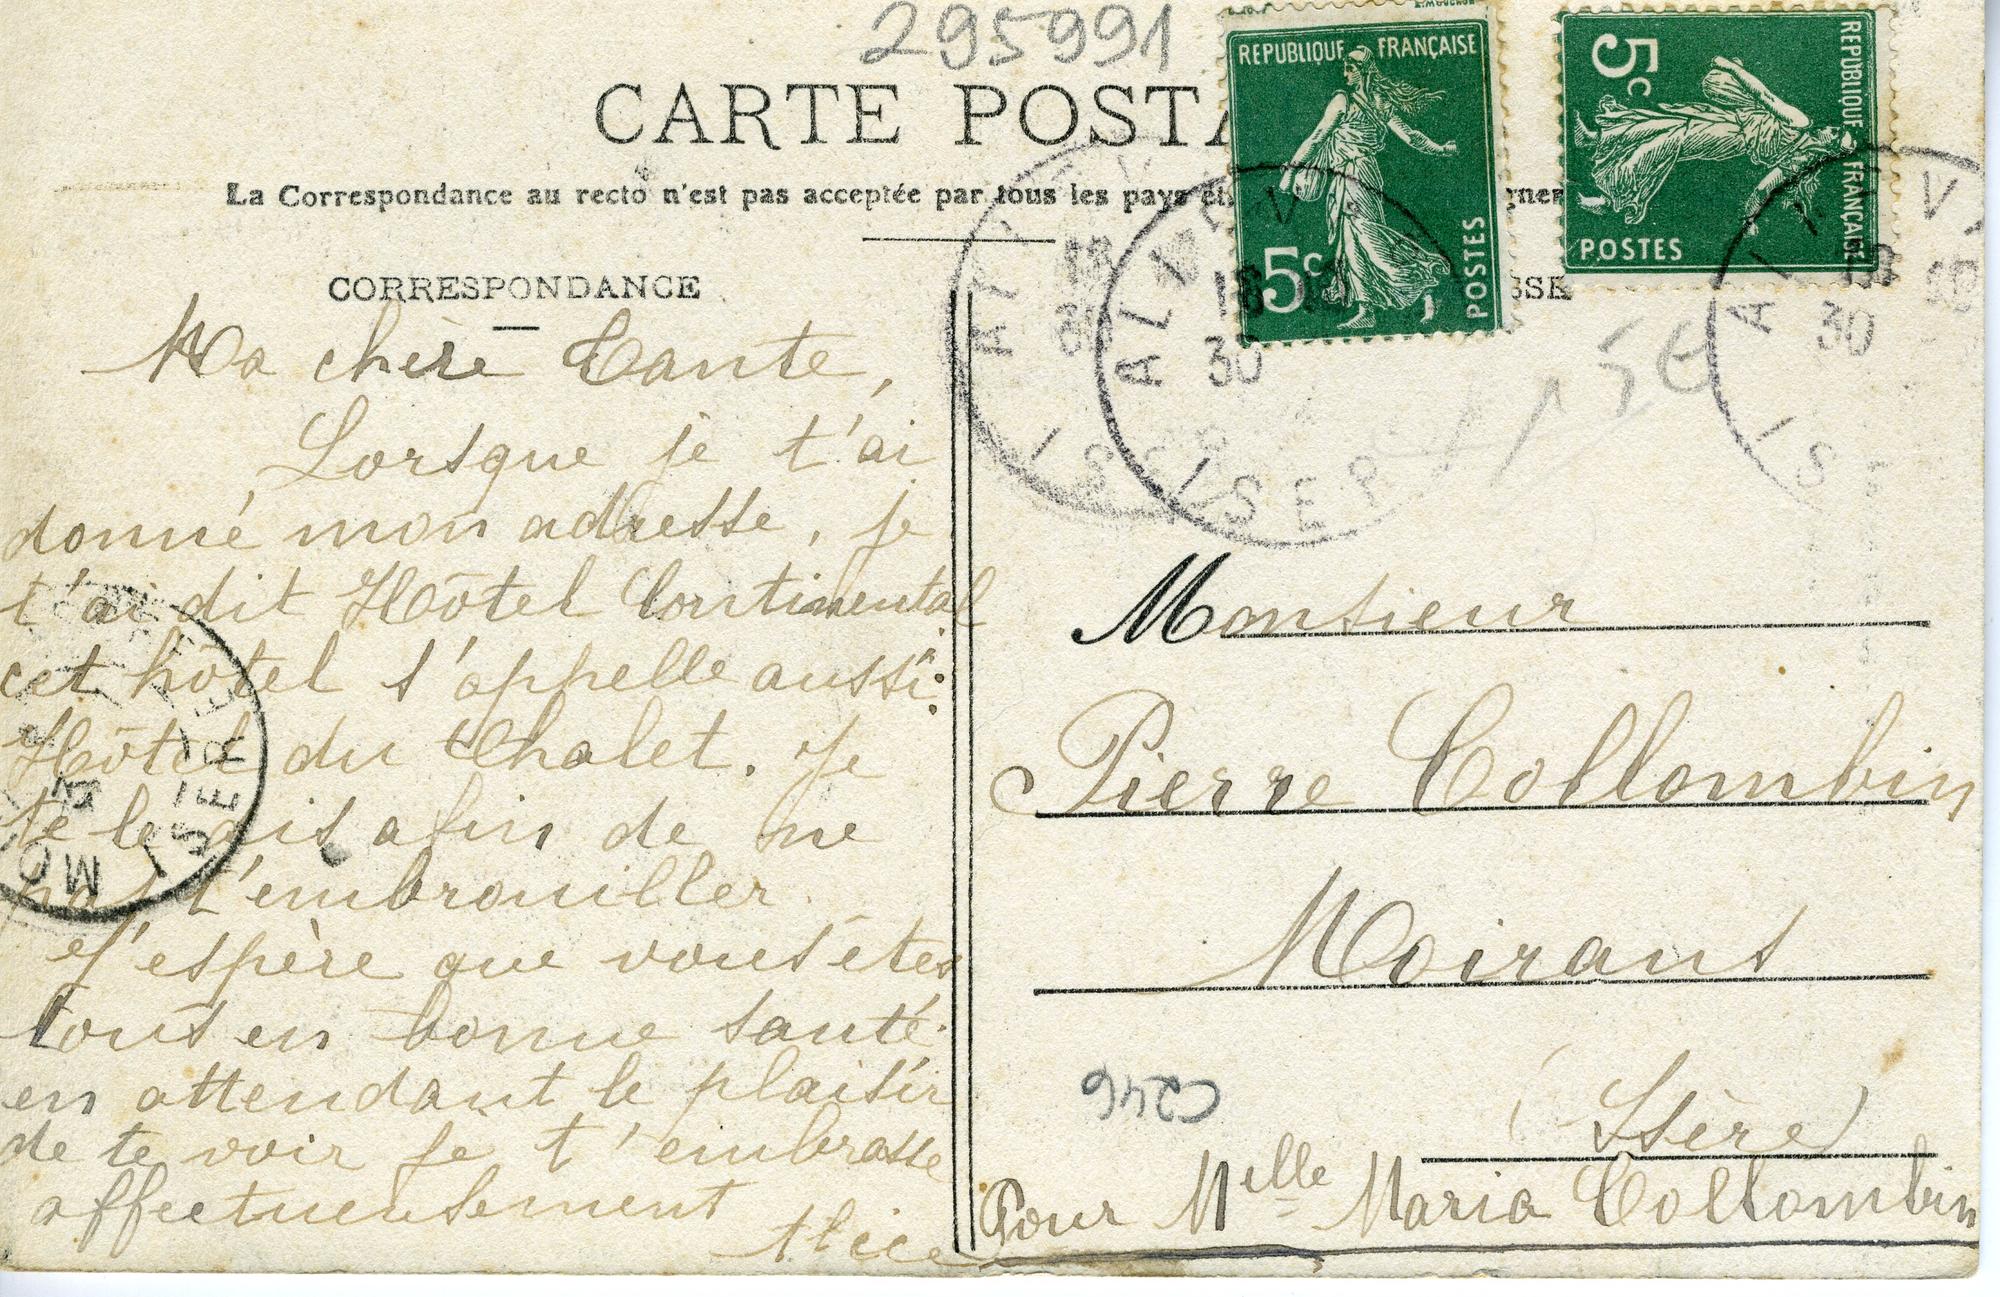 295991
CARTE POSTA
La Correspondance au recto n'est pas acceptée par tous les pays
CORRESPONDANCE
REPUBLIQUE FRANÇAISE
5c
POSTES
REPUBLIQUE FRANÇAISE
5c
POSTES
30
30
30
ISERE
Ma chère Tante,
Lorsque je t'ai
donné mon adresse, je
t'ai dit Hôtel Continental
cet hôtel s'appelle aussi:
Hôtel du Chalet. Je
te le dis afin de ne
pas t'embrouiller.
J'espère que vous êtes
tous en bonne santé.
en attendant le plaisir
de te voir je t'embrasse
affectueusement
Alice
Monsieur
Pierre Collombin
Moirans
(Isère)
Pour Melle Maria Collombin
C246
ISERE